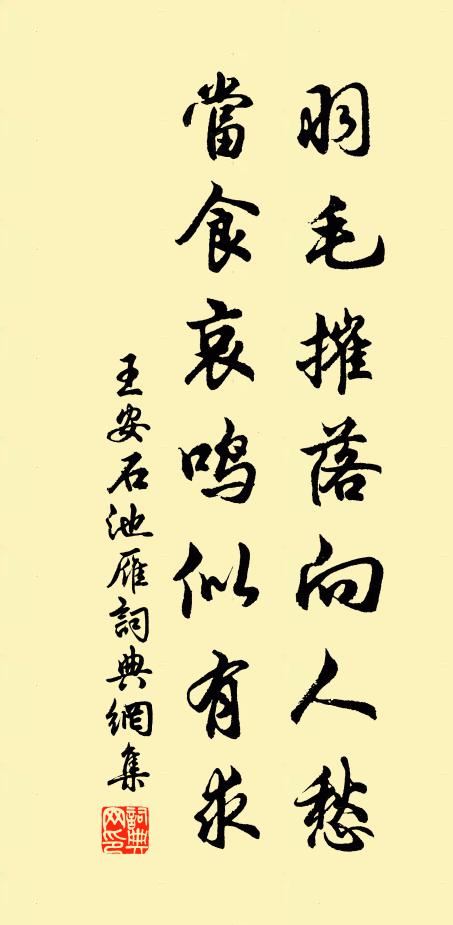 羽毛摧落向人愁
當食哀鳴似有求
王安石池雁詞典網集
詞典网印